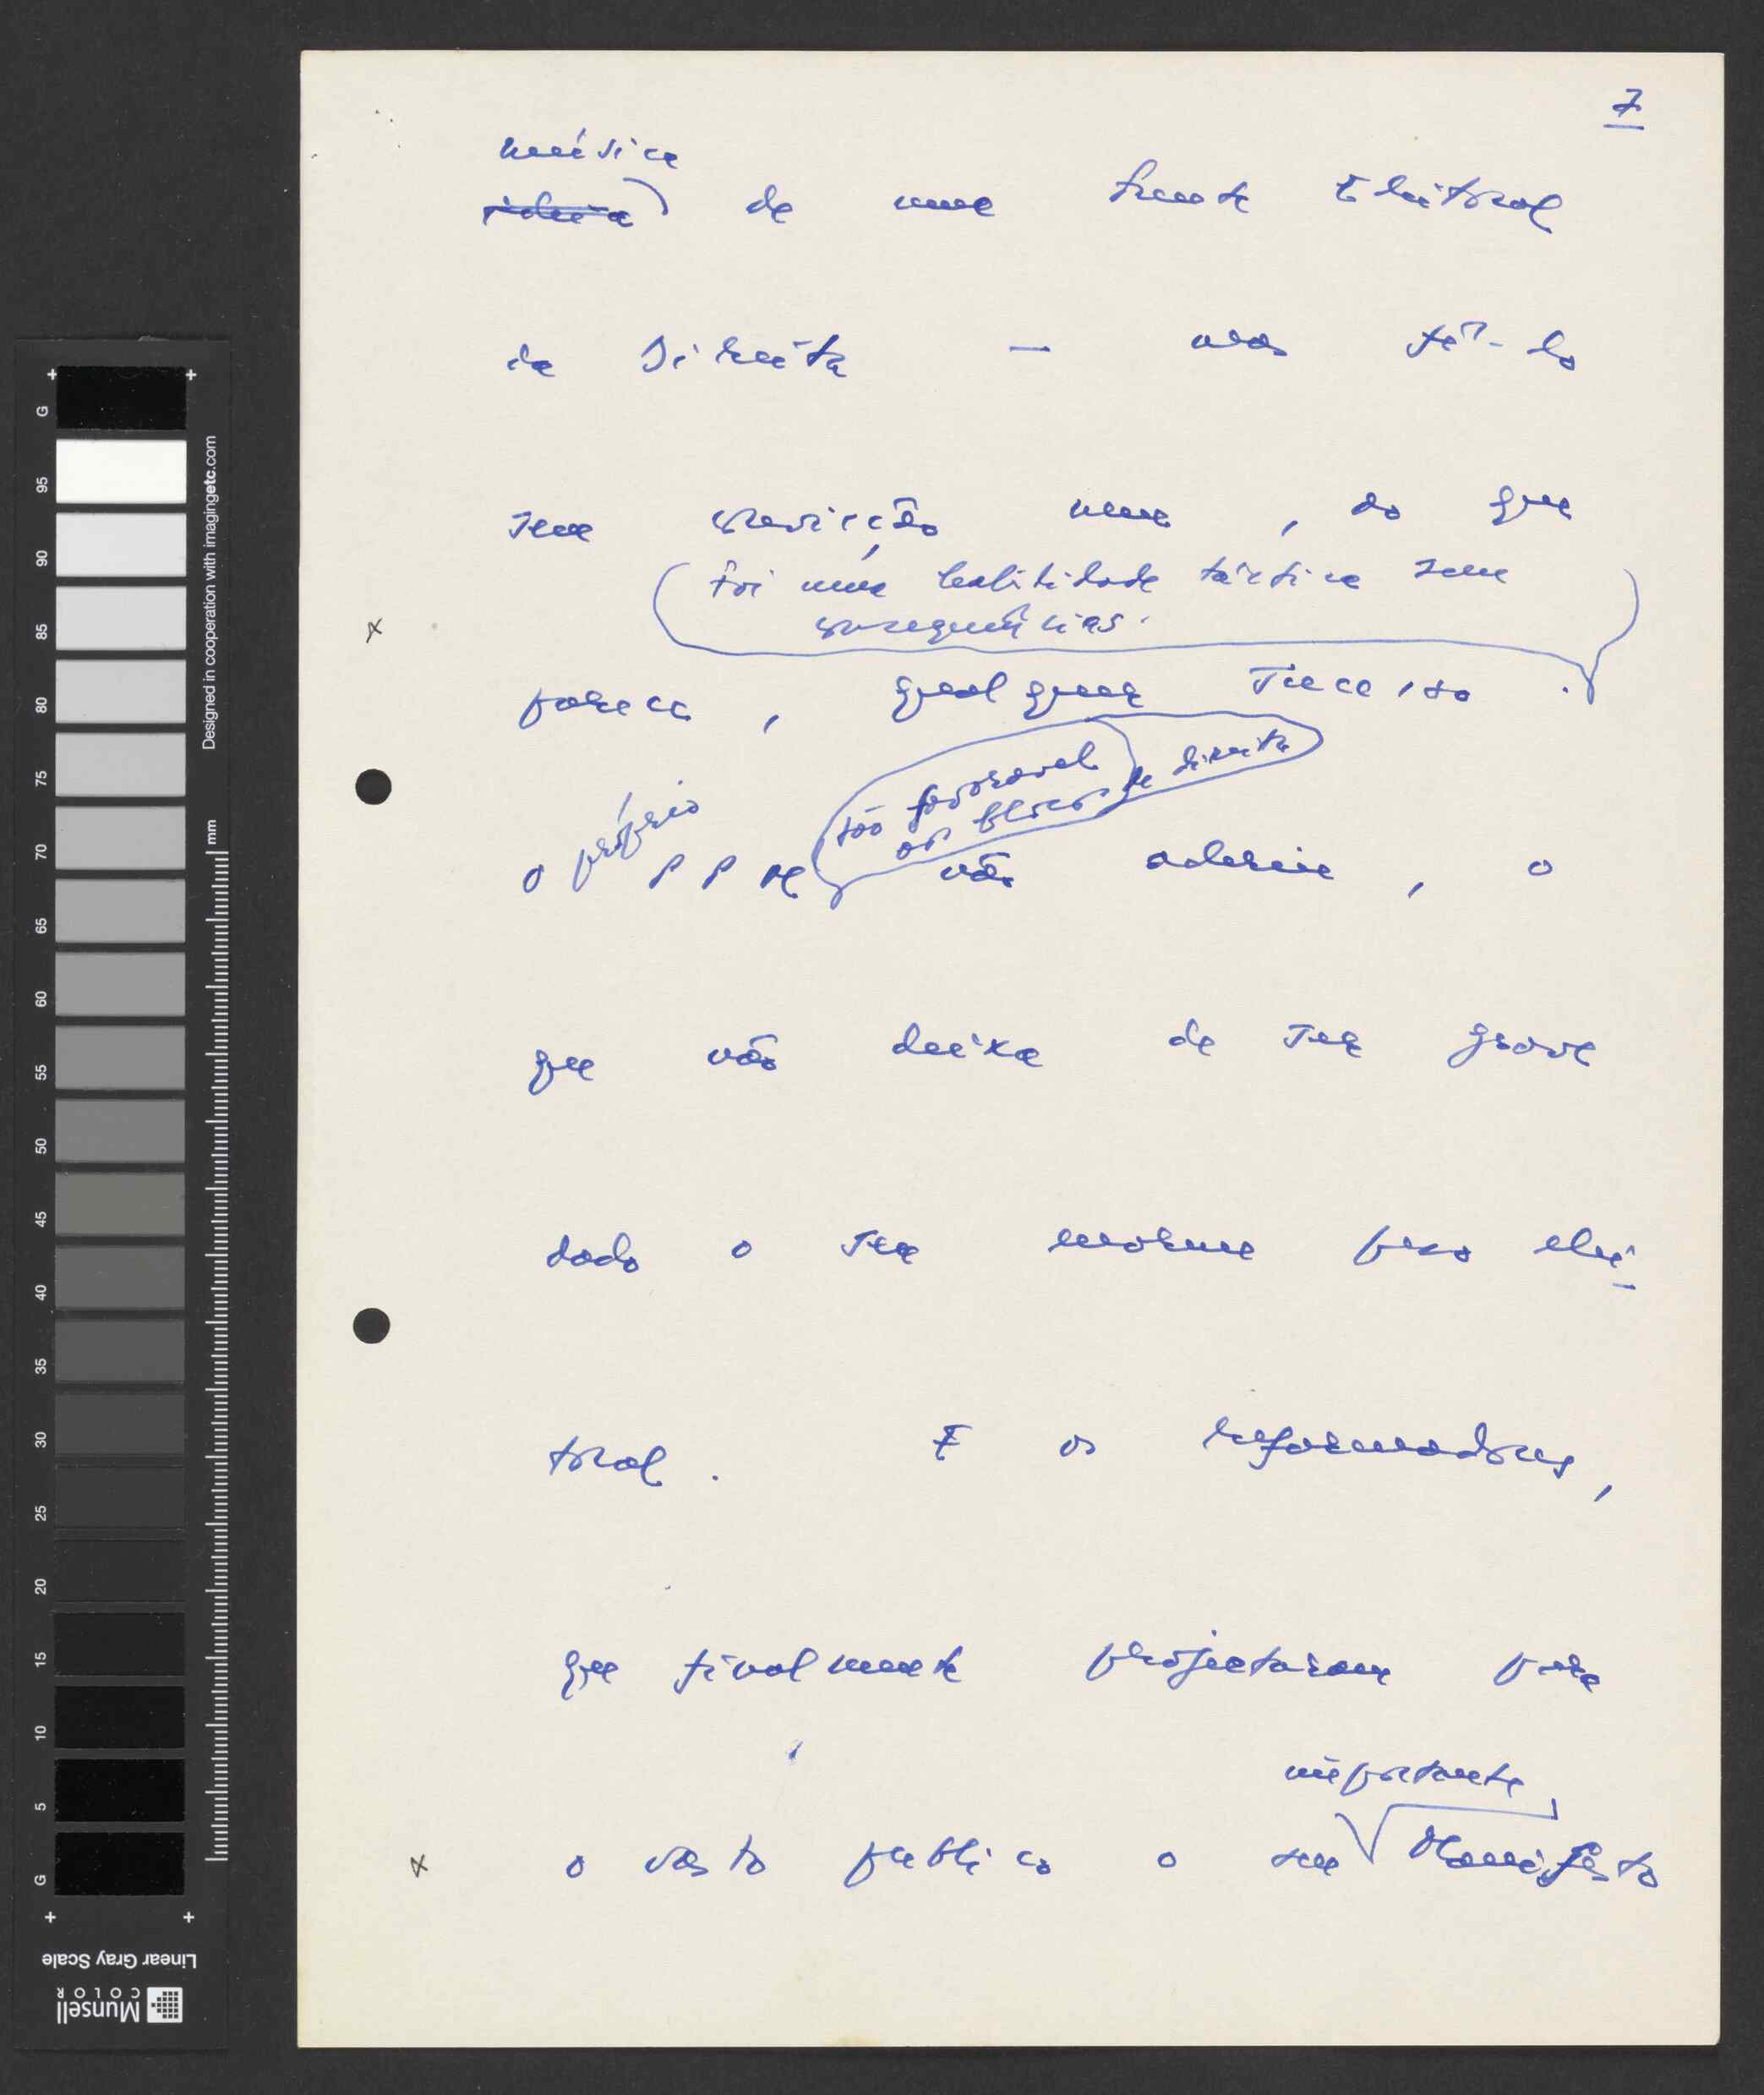 7
música
ideia
de uma Frente Eleitoral
da Direita — mas fê-lo
sem convicção nem, ao que
Foi uma habilidade táctica sem
consequências.
parece, qualquer sucesso.
o próprio PPM não aderiu, o
tão favorável
ao bloco de direita
que não deixa de ser grave
dado o seu enorme peso elei-
toral. E os reformadores,
que finalmente projectaram para
importante
o vasto publico o seu Manifesto
G 95 90 85 80 75 70 65 60 55 50 45 40 35 30 25 20 15 10 5 G
Designed in cooperation with imagingetc.com
mm
Linear Gray Scale
Munsell
COLOR